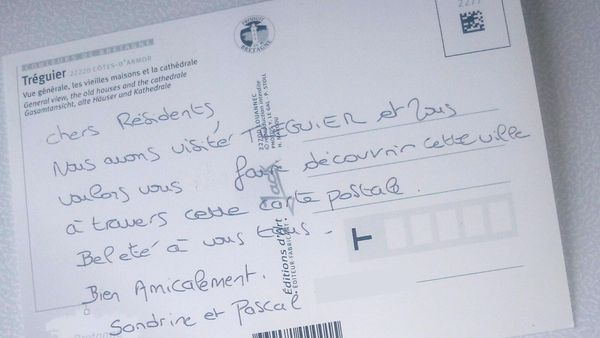 COULEURS DE BRETAGNE
Tréguier 22220 CÔTES-D'ARMOR
Vue générale, les vieilles maisons et la cathédrale
General view, the old houses and the cathedral
Gasamtansicht, alte Häuser und Kathedrale
PRODUIT EN BRETAGNE
2277
chers Résidents
Nous avons visité TREGUIER et Nous
voulons vous faire découvrir cette ville
à travers cette carte postale.
Bel eté à vous tous -
Bien Amicalement.
Sandrine et Pascal
Éditions d'art Jack
ÉDITEUR FABRICANT
22 LOUANNEC
reproduction interdite